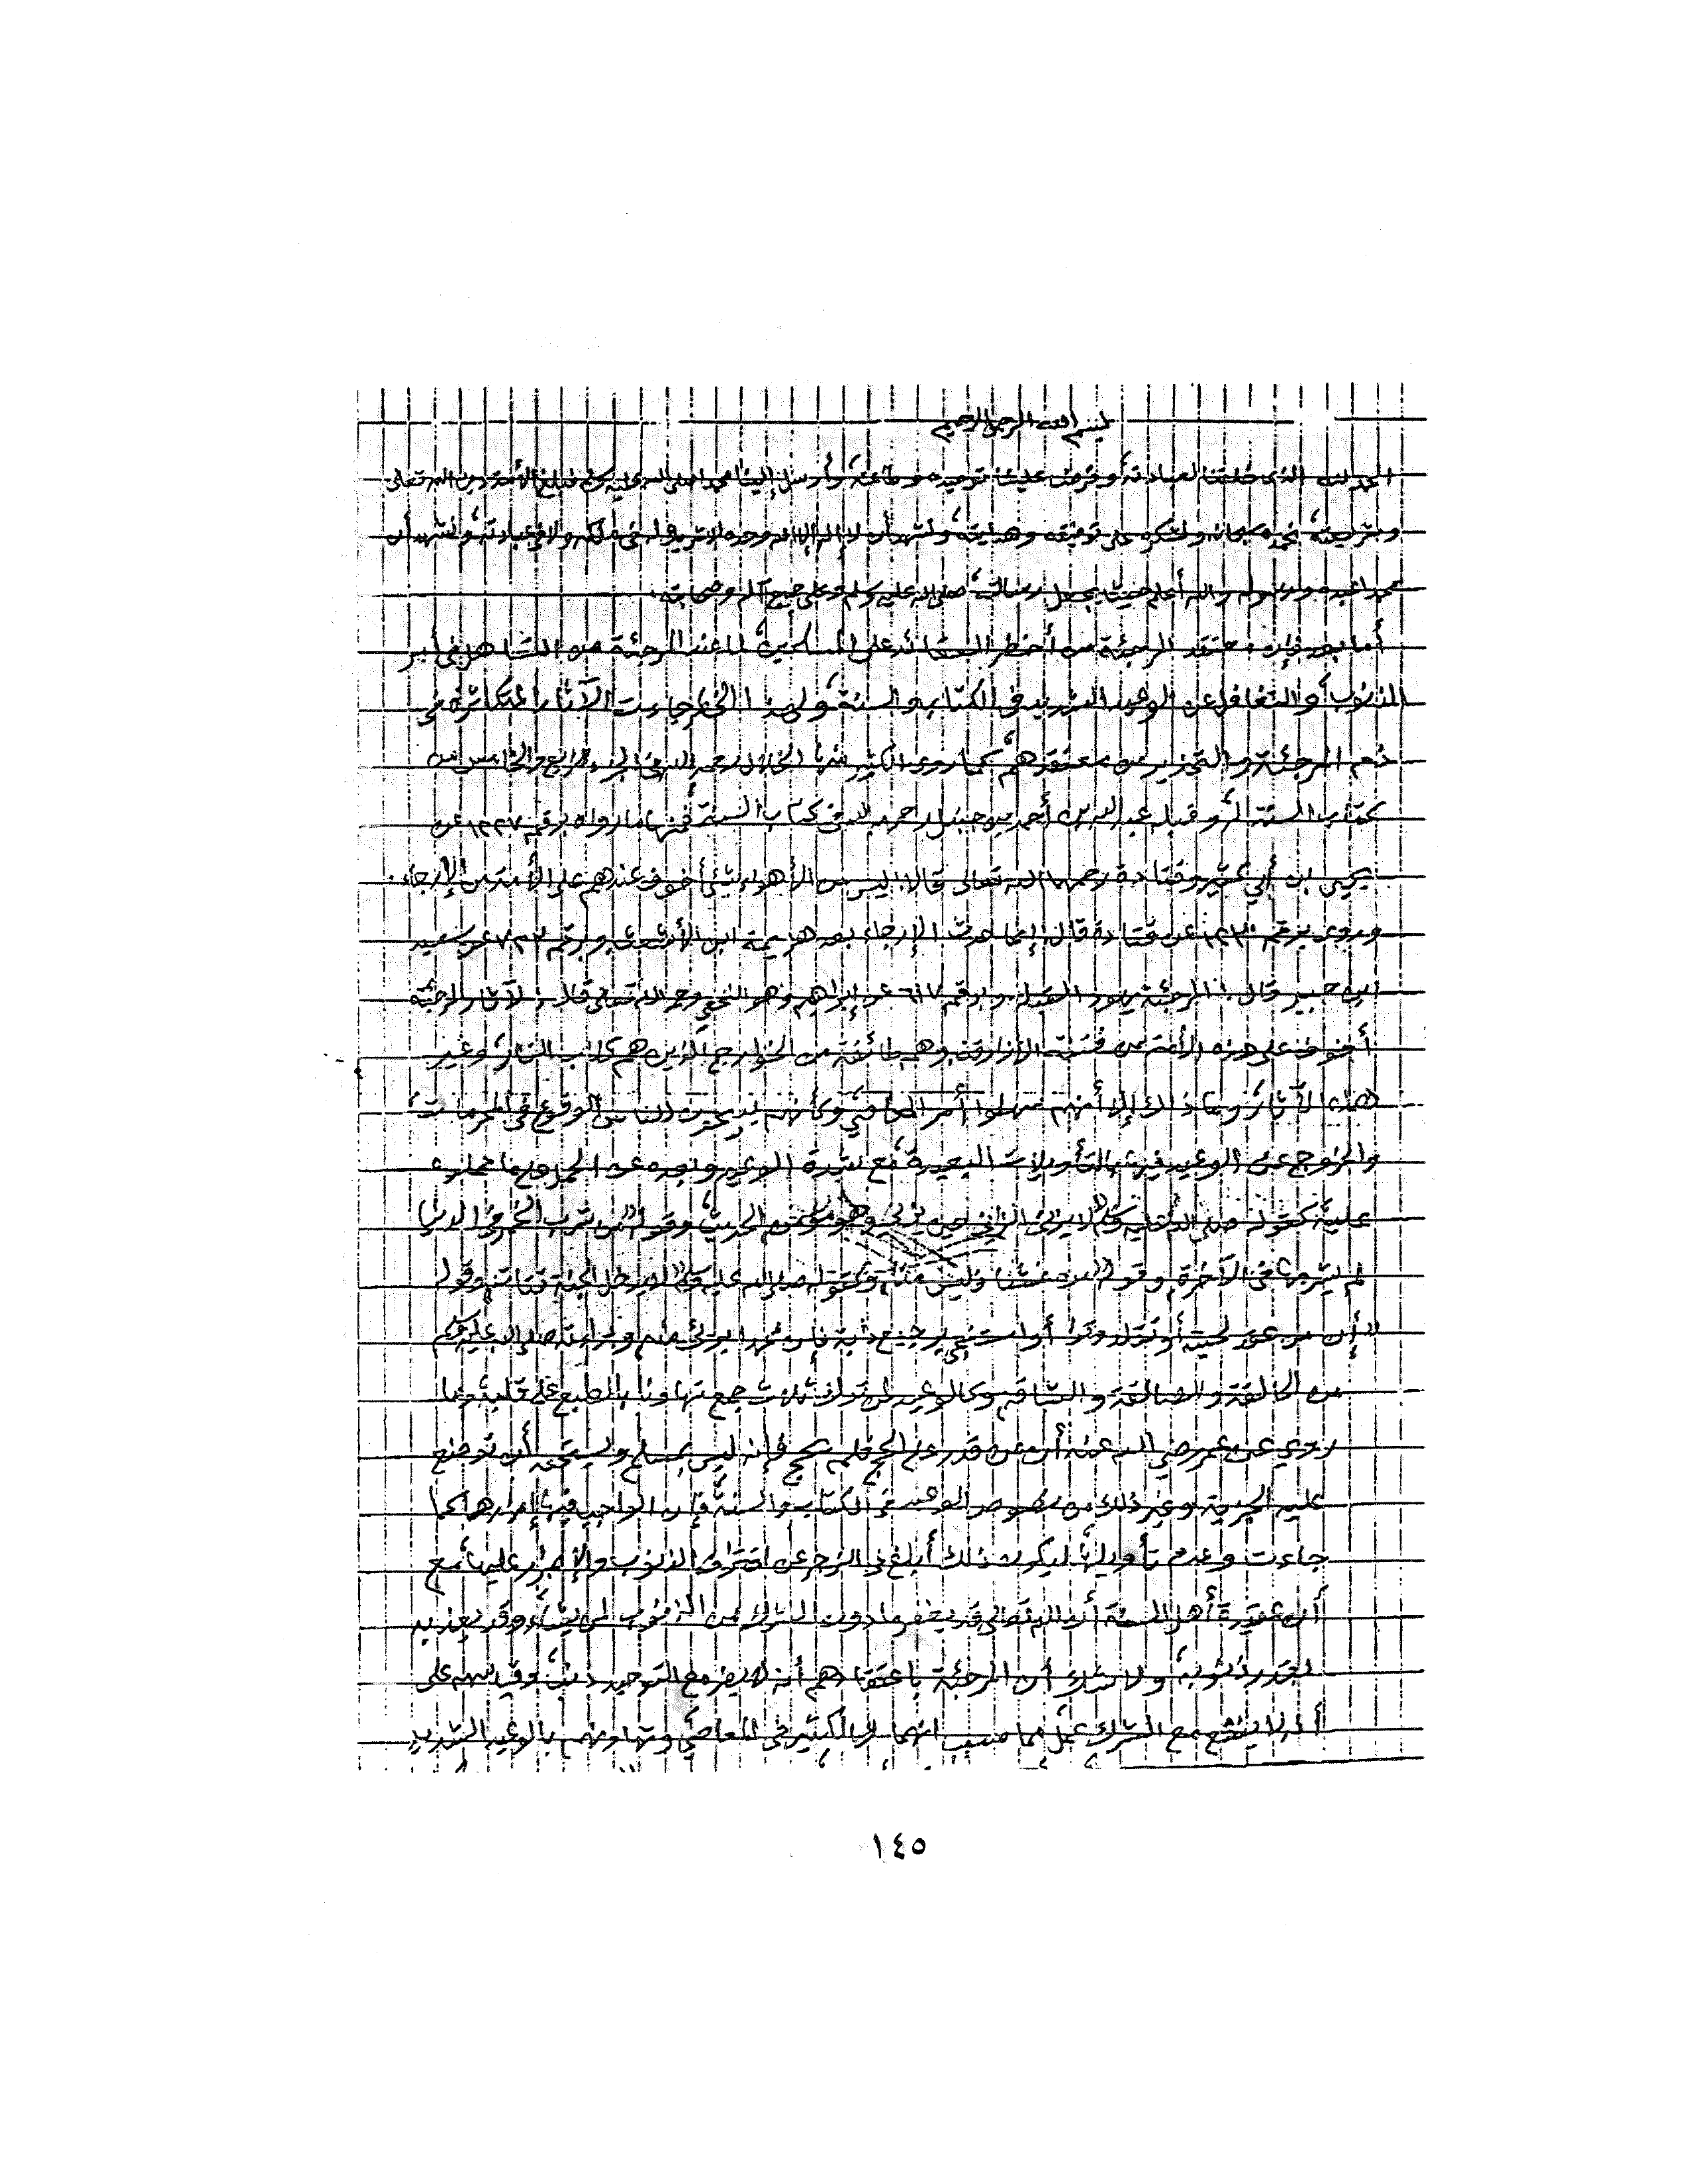 بسم الله الرحمن الرحيم
الحمد لله الذي خلقنا لعبادته، وفرض علينا توحيده وطاعته، وأرسل إلينا محمدا صلى الله عليه وسلم فبلغ الأمة دين الله تعالى
وشريعته، نحمده سبحانه ونشكره على توفيقه وهدايته، ونشهد أن لا إله إلا الله وحده لا شريك له في ملكه ولا في عبادته، ونشهد أن
محمدا عبده ورسوله والله أعلم حيث يجعل رسالته، صلى الله عليه وسلم وعلى جميع آله وصحابته.
أما بعد فإن معتقد المرجئة من أخطر العقائد على المسلمين، لما عند المرجئة من التساهل في أمر
الذنوب، والتغافل عن الوعيد الشديد في الكتاب والسنة، ولهذا الخطر جاءت الآثار المتكاثرة في
ذم المرجئة والتحذير من معتقدهم، كما روى الكثير منها الخلال رحمه الله في الجزء الرابع والخامس من
كتاب السنة له، وقبله عبد الله بن أحمد بن حنبل رحمه الله في كتاب السنة، فمنها ما رواه برقم ١٢٢٧ عن
يحيى بن أبي كثير وقتادة رحمهما الله تعالى قالا: ليس من الأهواء شيء أخوف عندهم على الأمة من الإرجاء.
وروى برقم ١٢٣٠ عن قتادة قال: إنما حدث الإرجاء بعد هزيمة ابن الأشعث وبرقم ٧٢٣ عن سعيد
ابن جبير قال: المرجئة يهود القبلة، وبرقم ٦١٧ عن إبراهيم وهو النخعي رحمه الله تعالى قال: لأنا للمرجئة
أخوف على هذه الأمة من فتنة الأزارقة، وهم طائفة من الخوارج الذين هم كلاب النار، وغير
هذه الآثار، وما ذاك إلا أنهم سهلوا أمر المعاصي، وكأنهم يبيحون للناس الوقوع في المحرمات،
والخروج عن الوعيد فيها بالتأويلات البعيدة، مع شدة الوعيد وبعده عن الحمل على ما حملوه
عليه، كقوله صلى الله عليه وسلم "لا يزني الزاني حين يزني وهو مؤمن" الحديث، وقوله "من شرب الخمر في الدنيا
لم يشربها في الآخرة" وقوله "من غشنا فليس منا" وكقوله صلى الله عليه وسلم "لا يدخل الجنة قتات" وقوله
"إن من عقد لحيته أو تقلد وترا أو استنجى برجيع دابة فإن محمدا بريء منه" وبراءته صلى الله عليه وسلم
من الحالقة والصالقة والشاقة، وكالوعيد لمن ترك ثلاث جمع تهاونا بالطبع على قلبه، وما
روي عن عمر رضي الله عنه أن من قدر على الحج فلم يحج فإنه ليس بمسلم ويستحق أن توضع
عليه الجزية، وغير ذلك من نصوص الوعيد في الكتاب والسنة، فإن الواجب فيها إمرارها كما
جاءت وعدم تأويلها، ليكون ذلك أبلغ في الزجر عن اقتراف الذنوب والإصرار عليها، مع
أن عقيدة أهل السنة أن الله تعالى قد يغفر ما دون الشرك من الذنوب لمن يشاء، وقد يعذبه
بقدر ذنوبه، ولا شك أن المرجئة باعتقادهم أنه لا يضر مع التوحيد ذنب، وقياسهم على
أنه لا ينفع مع الشرك عمل، مما سبب انهماك الكثير في المعاصي، وتهاونهم بالوعيد الشديد
١٤٥